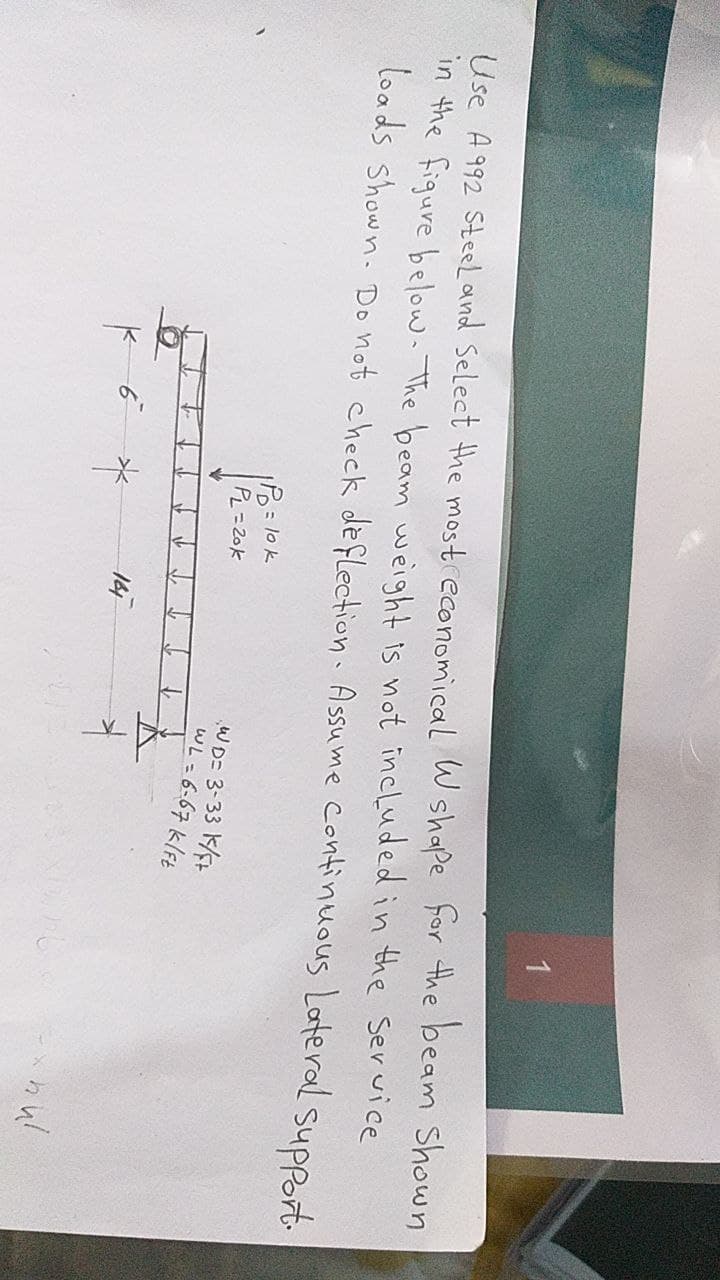 1
Use A992 Steel and Select the most economical W shape for the beam Shown
in the figure below. The beam weight is not included in the Service
loads Shown. Do not check deflection. Assume Continuous Lateral Support.
PD = 10 k
PL = 20 k
WD = 3.33 k/ft
WL = 6.67 k/ft
6'
14'